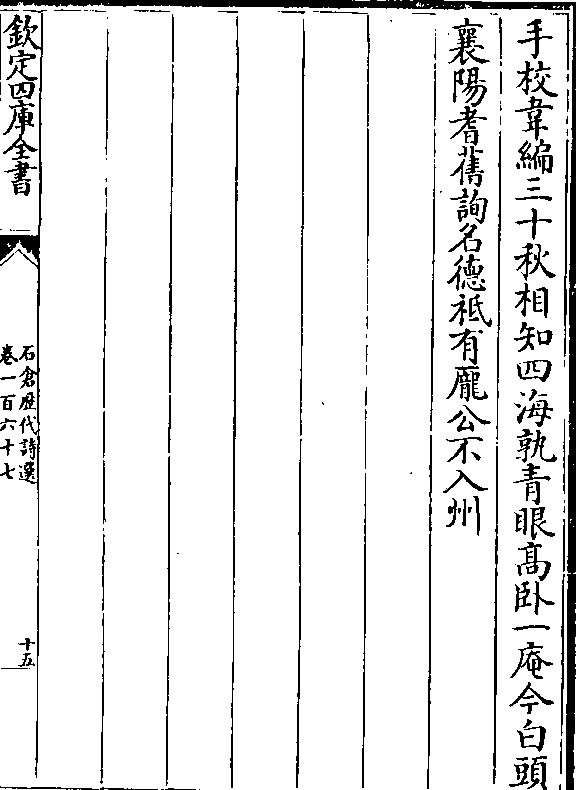 手校韋編三十秋相知四海孰青眼髙卧一庵今白頭
襄陽耆舊詢名德祗有龎公不入州
欽定四庫全書
石倉歴代詩選
卷一百六十七
十五